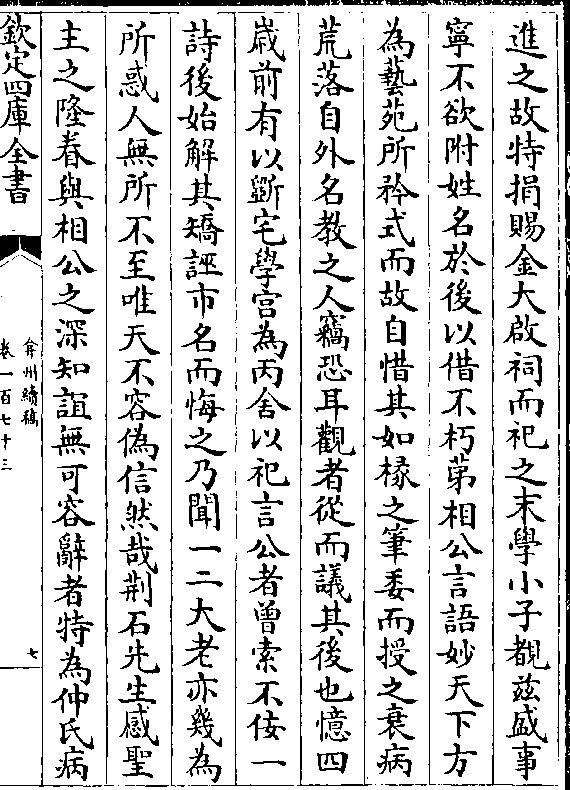 進之故特捐賜金大啟祠而祀之末學小子覩茲盛事
寧不欲附姓名於後以借不朽苐相公言語妙天下方
為藝苑所矜式而故自惜其如椽之筆委而授之衰病
荒落自外名教之人竊恐耳觀者從而議其後也憶四
歲前有以斷宅學宫為丙舍以祀言公者曾索不佞一
詩後始解其矯誣市名而悔之乃聞一二大老亦幾為
所惑人無所不至唯天不容偽信然哉荆石先生感聖
主之隆眷與相公之深知誼無可容辭者特為仲氏病
欽定四庫全書
弇州續稿
卷一百七十三
七